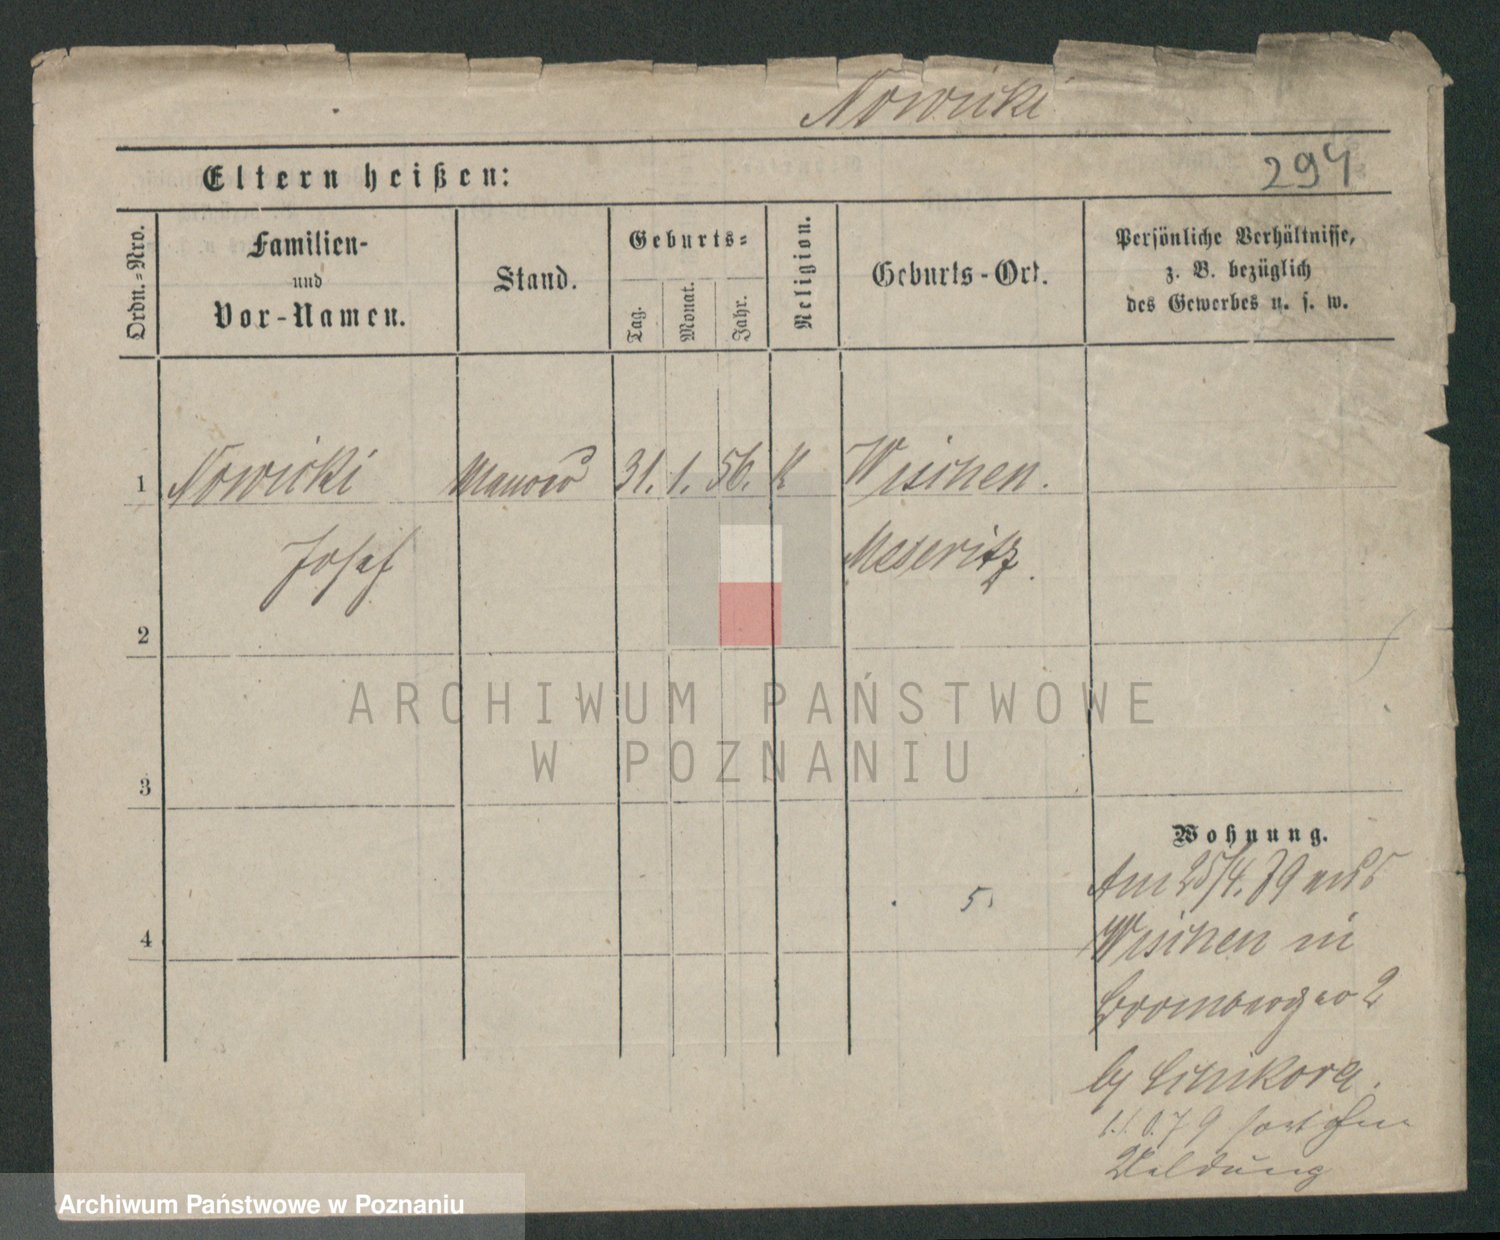 Nowicki
294
Eltern heißen:
Ordn.-Nro.
Familien-
und
Vor-Namen.
Stand.
Geburts-
Tag.
Monat.
Jahr.
Religion.
Geburts-Ort.
Persönliche Verhältnisse,
z. B. bezüglich
des Gewerbes u. s. w.
1 Nowicki 31. 1. 56. K
Josef Meseritz.
2
ARCHIWUM PAŃSTWOWE
W POZNANIU
3
Wohnung.
Am 25/4. 79 aus
5
4
in
2
by
79 fort ohne
Meldung
Archiwum Państwowe w Poznaniu